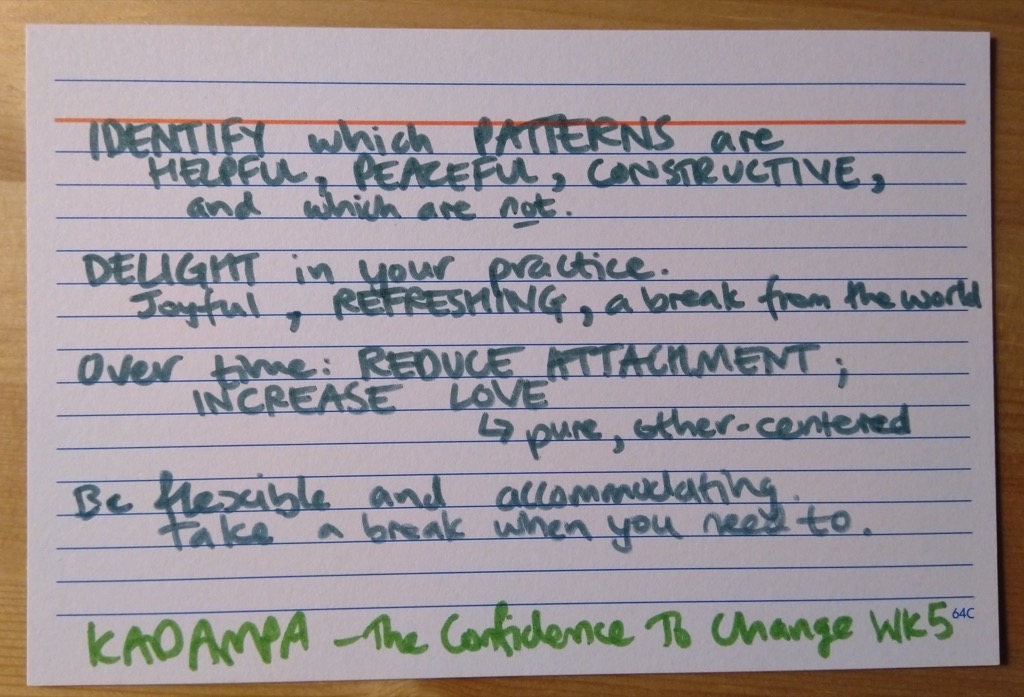 IDENTIFY which PATTERNS are
HELPFUL, PEACEFUL, CONSTRUCTIVE,
and which are not.
DELIGHT in your practice.
Joyful, REFRESHING, a break from the world
Over time: REDUCE ATTACHMENT;
INCREASE LOVE
↳ pure, other-centered
Be flexible and accommodating.
Take a break when you need to.
64C
KADAMPA - The Confidence To Change WK5